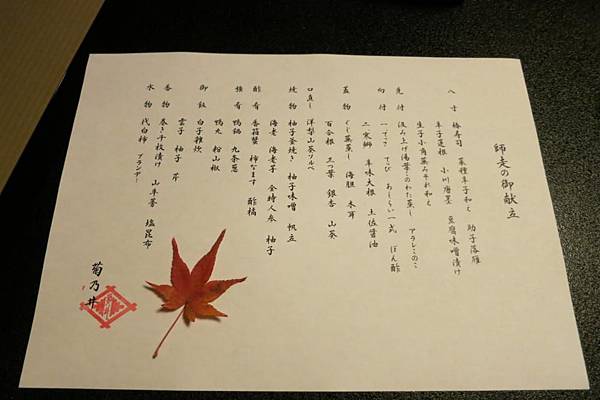 師走の御献立
八寸 椿寿司 菜種辛子和え 助子落雁
辛子蓮根 小川唐墨 豆腐味噌漬け
生子小角蒸みぞれ和え
先付 汲み上げ湯葉このわた蒸し アラレこのこ
向付 一、てっさ てっぴ あしらい一式 ぽん酢
二、寒鰤 辛味大根 土佐醤油
蓋物 ぐじ蕪蒸し 海胆 木耳
百合根 三つ葉 銀杏 山葵
口直し 洋梨山葵ソルベ
焼物 柚子釜焼き 柚子味噌 帆立
海老 海老芋 金時人参 柚子
酢肴 香箱蟹 柿なます 酢橘
強肴 鴨鍋 九条葱
鴨丸 粉山椒
御飯 白子雑炊
雲子 柚子 芹
香物 巻き千枚漬け 山牛蒡 塩昆布
水物 代白柿 ブランデー
菊乃井